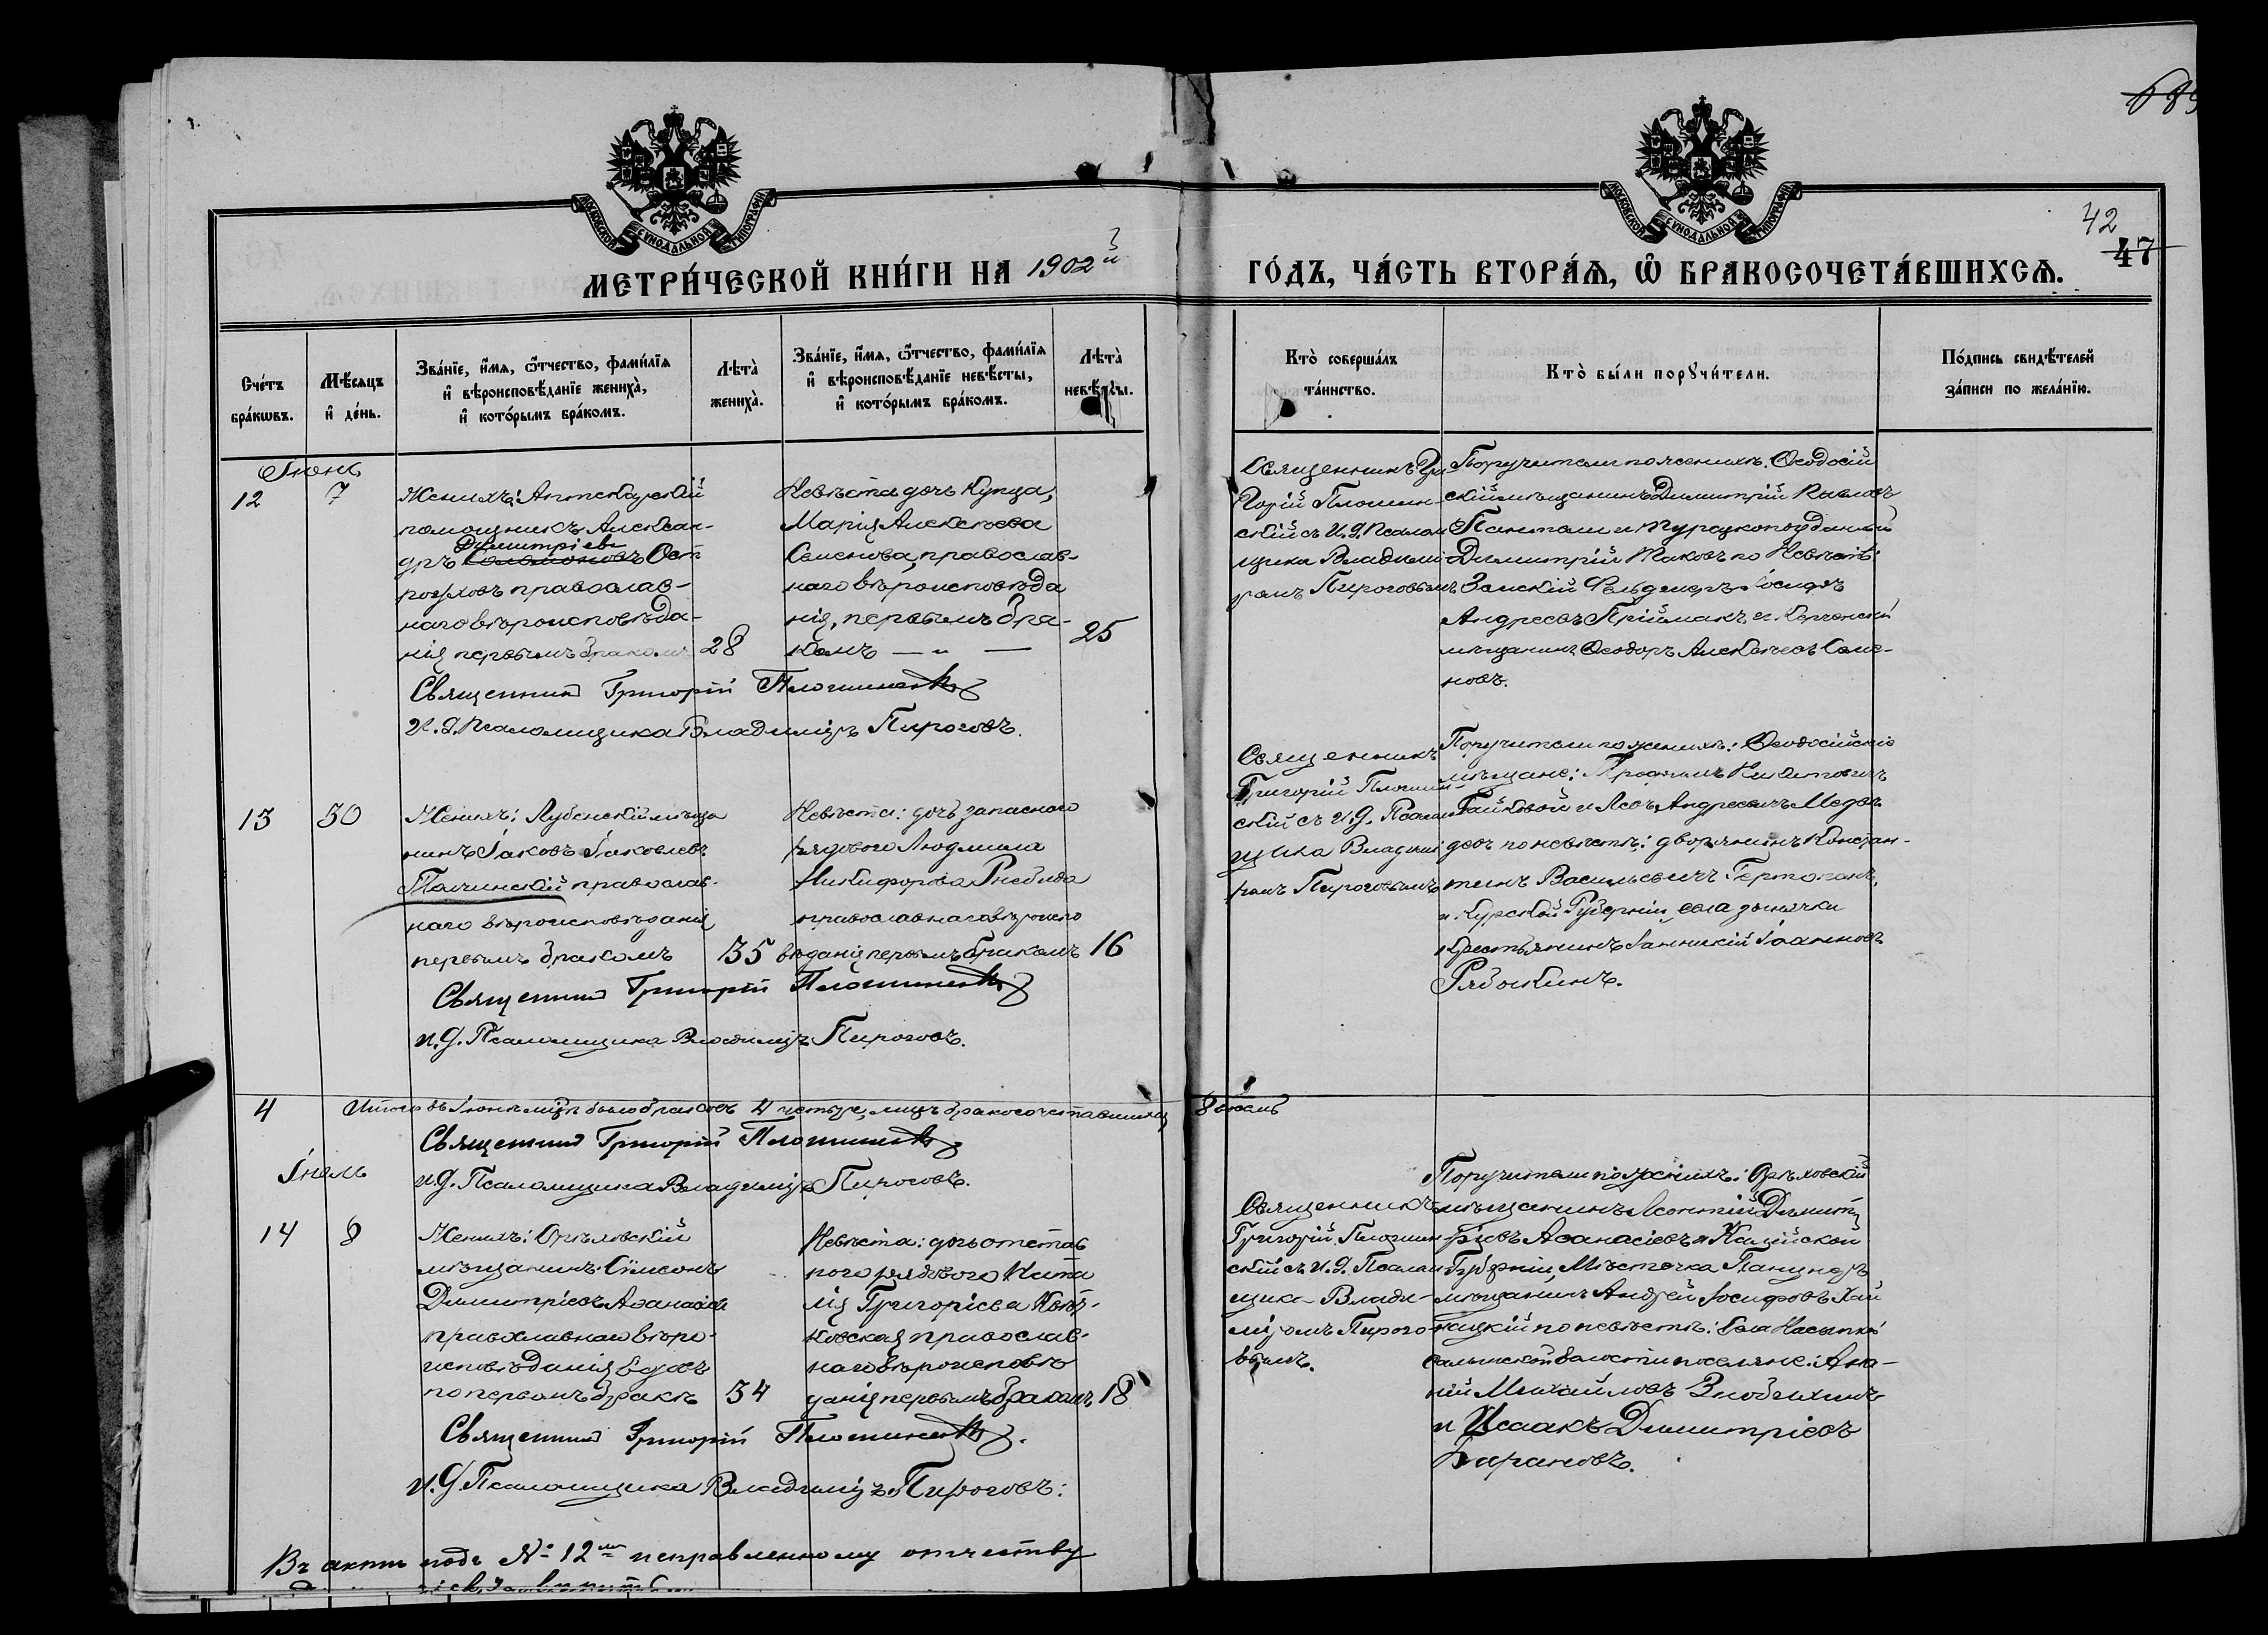 689
42
47
МОСКОВСКОЙ СѴНОДАЛЬНОЙ ТИПОГРАФІИ
МОСКОВСКОЙ СѴНОДАЛЬНОЙ ТИПОГРАФІИ
МЕТРИ́ЧЕСКОЙ КНИ́ГИ НА 1902й
ГО́ДЪ, ЧА́СТЬ ВТОРА́Ѧ, Ѡ҆ БРАКОСОЧЕТА́ВШИХСѦ.
Сче́тъ бра́кѡвъ.
Мѣ́сѧцъ и҆ де́нь.
Зва́нїе, и҆́мѧ, ѻ҆́тчество, фамѝлїѧ
и҆ вѣроисповѣ́данїе жениха̀,
и҆ кото́рымъ бра́комъ.
Лѣта̀ жениха̀.
Зва́нїе, и҆́мѧ, ѻ҆́тчество, фамѝлїѧ
и҆ вѣроисповѣ́данїе невѣ́сты,
и҆ кото́рымъ бра́комъ.
Лѣта̀ невѣ́сты.
Кто̀ соверша́лъ
та́инство.
Кто̀ бы́ли порꙋчи́тели.
По́дпись свидѣ́телей
за́писи по жела́нїю.
Іюнь
12
7
Женихъ: Аптекарскій
помощникъ Алексан-
Димитріевъ
дръ Ост-
роуховъ православ-
наго вѣроисповѣда-
нія первымъ бракомъ
28
Невѣста дочь купца,
Марія Алексѣева
Семенова, православ-
наго вѣроисповѣда
нія, первымъ бра-
комъ — „ —
25
Священникъ Гри
горій Плошин-
скій съ И. д. Псалом
щика Владимі-
ромъ Пироговымъ
Поручители по женихѣ: Ѳеодосій
скій мѣщанинъ Димитрій Павловъ
Пантели и турецкоподданный
Димитрій Жаковъ по Невѣстѣ:
Земскій Фельдшеръ Іосифъ
Андреевъ Пріймакъ и Керченскій
мѣщанинъ Ѳеодоръ Алексѣевъ Семе-
новъ.
Священникъ Григорій Плошинскій
И. д. Псаломщика Владиміръ Пироговъ.
13
30
Женихъ: Лубенскій мѣща
нинъ Іаковъ Іаковлевъ
православ-
наго вѣроисповѣданія
первымъ бракомъ
35
Невѣста: дочь запаснаго
рядового Людмила
Никифорова
православнаго вѣроиспо
вѣданія первымъ бракомъ
16
Священникъ
Григорій Плошин-
скій съ И. д. Псалом
щика Владимі
ромъ Пироговымъ
Поручители по женихѣ: Ѳеодосійскіе
мѣщане: Трофимъ Никитовичъ
Гайковой и Левъ Андреевичъ Медвѣ
девъ по невѣстѣ: дворянинъ Констан-
тинъ Васильевичъ
и Курской Губерніи, села
крестьянинъ Іанникій Іоанновъ
Рябошкинъ.
Священникъ Григорій Плошинскій
И. д. Псаломщика Владиміръ Пироговъ.
4
Итого въ Іюнѣ мцѣ было браковъ 4 четыре, лицъ бракосочетавшихся
8 восемь
Священникъ Григорій Плошинскій
И. д. Псаломщика Владиміръ Пироговъ.
Іюль
14
8
Женихъ: Орѣховскій
мѣщанинъ Сѵмеонъ
Димитріевъ Аѳанасіевъ
православнаго вѣро-
исповѣданія вдовъ
по первомъ бракѣ
34
Невѣста: дочь отстав
ного рядового Ната
лія Григорьева
православ-
наго вѣроисповѣ
данія первымъ бракомъ
18
Священникъ
Григорій Плошин
скій съ И. д. Псалом
щика Влади-
міромъ Пирого-
вымъ.
Поручители по женихѣ: Орѣховскій
мѣщанинъ Леонтій Димит
ріевъ Аѳанасіевъ и
Губерніи, Мѣстечка
мѣщанинъ Андрей Іосифовъ
по невѣстѣ: Села Насыпкой
волости поселяне: Ана-
ній Михайловъ Злобихинъ
и Исаакъ Димитріевъ
Барановъ.
Священникъ Григорій Плошинскій.
И. д. Псаломщика Владиміръ Пироговъ:
Въ актѣ подъ № 12мъ исправленному отчеству